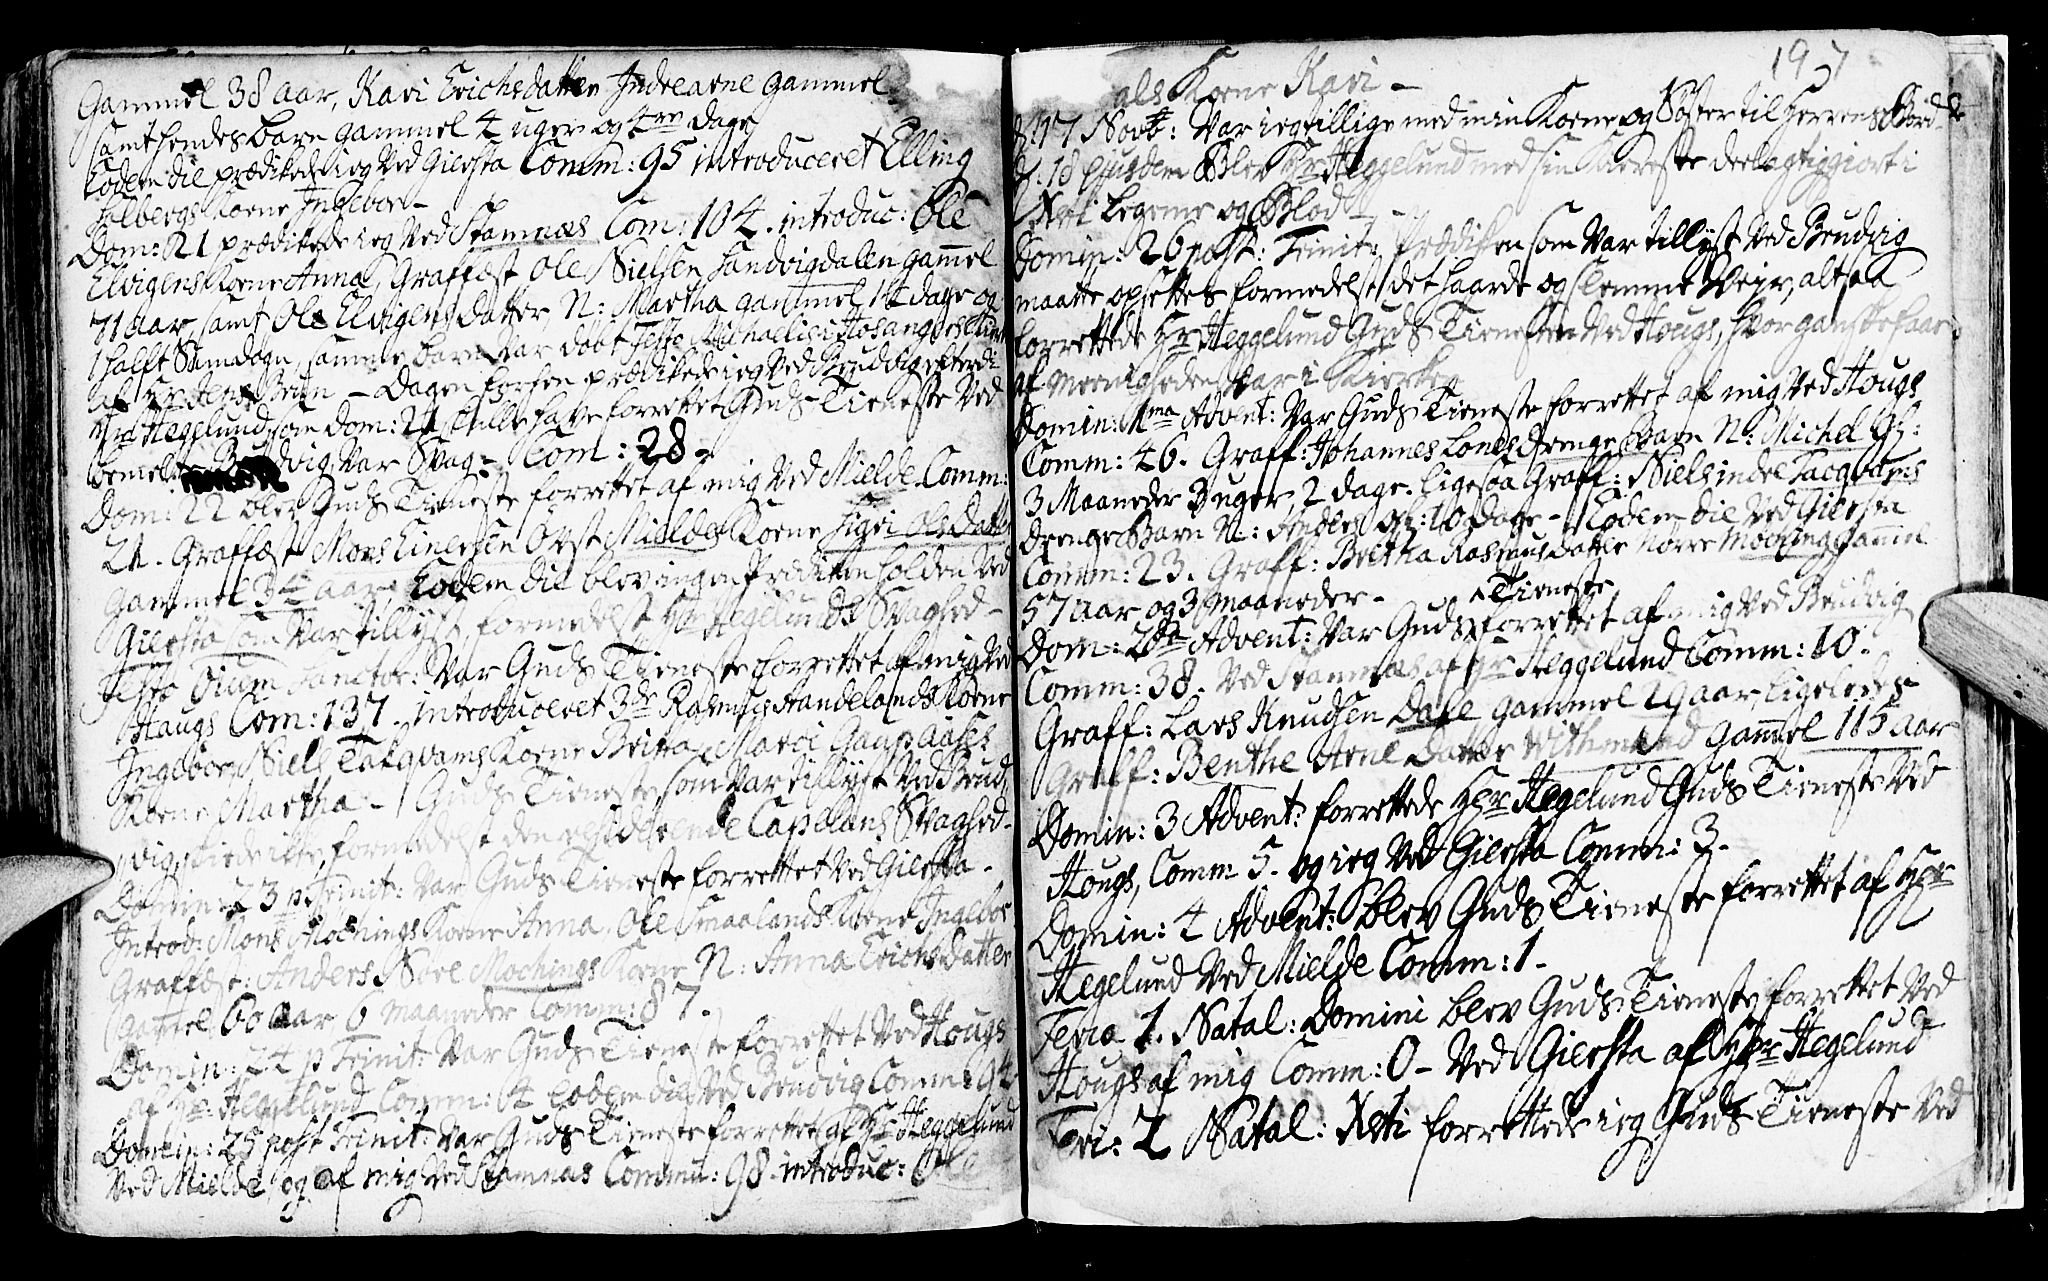 Gammel 38 aar, Kari Erichsdatter Indrearne gammel
samt hendes barn gammel 4 uger og 4re dage
Eodem die prædikede ieg ved Giersta Comm: 95 introduceret Elling
Kone Ingebor-
Dom: 21 prædikede ieg ved Stamnæs Com: 104. introduc: Ole
Elvigens Kone Anna, Graffæst Ole Nielsen Sandvigdalen gamel
71 aar, samt Ole Elvigens datter N: Martha gammel 14 dage og
1 halft samme barn var døbt Festo Michaelis i Hosanger
af Hr - Dagen forhen prædikede ieg ved Brudvig efterdi
Hr: Hegelund, som Dom: 21 skulle have forrettet Guds Tieneste ved
Brudvig, var Svag - Com: 28-
Dom: 22 blev Guds Tieneste forrettet af mig ved Mielde Comm:
21. Graffæst Mons Einersen Mieldes Kone Sigri Olsdatter
gammel 34 aar. Eodem die blev ingen Prædiken holden ved
Giersta som var tillyst formedelst Hr Hegelunds Svaghed-
Festo Oium Sanctor: var Guds Tieneste forrettet af mig ved
Haugs Com: 137. introduceret 3de Rasmus Kone
Ingebor, Niels Tacqvams Kone Britta,
Kone Martha - Guds Tieneste, som var tillyst ved Brud-
vig, formedelst den residerende Capellans Svaghed-
Domin: 23 p Trinit: var Guds Tieneste forrettet ved Giersta-
Introd: Mons Mochings Kone Anna, Ole Smaalands Kone Ingebor
Graffæst: Anders Nore Mochings Kone N: Anna Erichsdatter
gamel 60 aar 6 maaneder Comm: 87.
Domin: 24 p Trinit: var Guds Tieneste forrettet ved Hougs
af Hr: Hegelund Comm: eodem die ved Brudvig Comm:
Domin: 25 post Trinit: var Guds Tieneste forrettet af Hr Heggelund
ved Mielde, og af mig ved Stamnæs Commu: 98. introduc:
197
als Kone Kari -
d: 17 Novb: var ieg tillige med min Kone og Søster til Herrens Bord-
d: 18 Ejusdem Blev Hr Heggelund med sin Kiereste deelagtiggiort i
Xsti Legeme og Blod -
Domin: 26 post: Trinit: Prædiken som var tillyst ved Brudvig
maatte opsettes formedelst det haarde og slemme Veir, altsaa
forrettede Hr Heggelund Guds Tienesten ved Hougs, hvor ganske faar
af Meenigheden var i Kierken
Domin: 1ma Advent: var Guds Tieneste forrettet af mig ved Hougs
Comm: 46. Graff: Johannes Lones drenge Barn N: Michel
3 Maaneder 3 uger, 2 dage. ligesaa Graff: Niels indre Tacqvams
drenge Barn N: Anders 10 dage - Eodem die ved Giersta
Comm: 23. Graff: Britha Rasmusdatter Norre Moching gamel
57 aar og 3 maaneder -
Dom: 2da Advent: var Guds Tieneste forrettet af mig ved Brudvig
Comm: 38. ved Stamnæs af Hr Heggelund Comm: 10.
Graff: Lars Knudsen Dale gammel 29 aar, ligeledes
Graff: Benthe Arne Datter gammel 115 aar
Domin: 3 Advent: forrettede Hr Hegelund Guds Tieneste ved
Hougs, Comm 5. og ieg ved Giersta Comm: 3-
Domin: 4 Advent: blev Guds Tieneste forrettet af Hr
Hegelund ved Mielde Comm: 1-
Feria 1. Natal: Domini blev Guds Tieneste forrettet ved
Hougs af mig Comm: 0 - ved Giersta af Hr Hegelund
Feri: 2 Natal: Xsti forrettede ieg Guds Tieneste ved